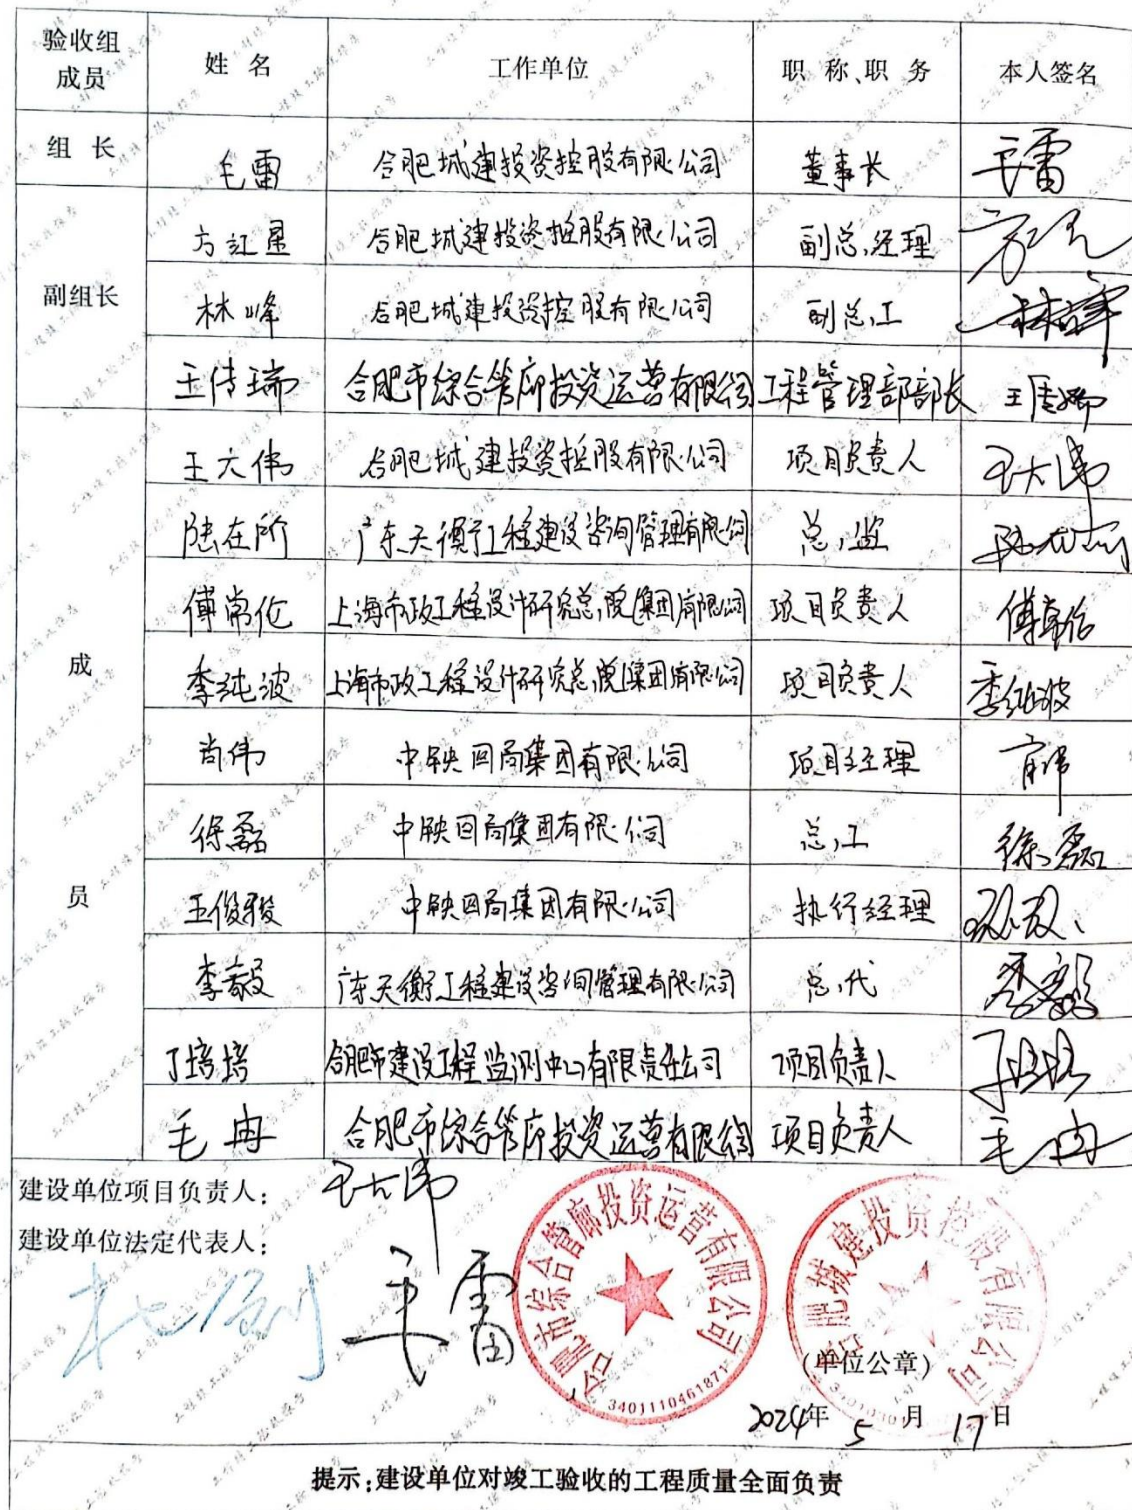 验收组成员 姓名 工作单位 职称、职务 本人签名
组长 毛雷 合肥城建投资控股有限公司 董事长 毛雷
副组长
方红星 合肥城建投资控股有限公司 副总经理
林峰 合肥城建投资控股有限公司 副总工 林峰
王传瑞 合肥市综合管廊投资运营有限公司 工程管理部部长 王传瑞
成员
王大伟 合肥城建投资控股有限公司 项目负责人 王大伟
陆在所 广东天衡工程建设咨询管理有限公司 总监 陆在所
傅常伦 上海市政工程设计研究总院(集团)有限公司 项目负责人
李纯波 上海市政工程设计研究总院(集团)有限公司 项目负责人 李纯波
肖伟 中铁四局集团有限公司 项目经理 肖伟
徐磊 中铁四局集团有限公司 总工 徐磊
王俊骏 中铁四局集团有限公司 执行经理
李毅 广东天衡工程建设咨询管理有限公司 总代 李毅
丁培培 合肥市建设工程监测中心有限责任公司 项目负责人 丁培培
毛冉 合肥市综合管廊投资运营有限公司 项目负责人 毛冉
建设单位项目负责人: 王大伟
建设单位法定代表人: 毛雷
合肥市综合管廊投资运营有限公司
3401110461871
合肥城建投资控股有限公司
(单位公章)
2024年5月17日
提示:建设单位对竣工验收的工程质量全面负责